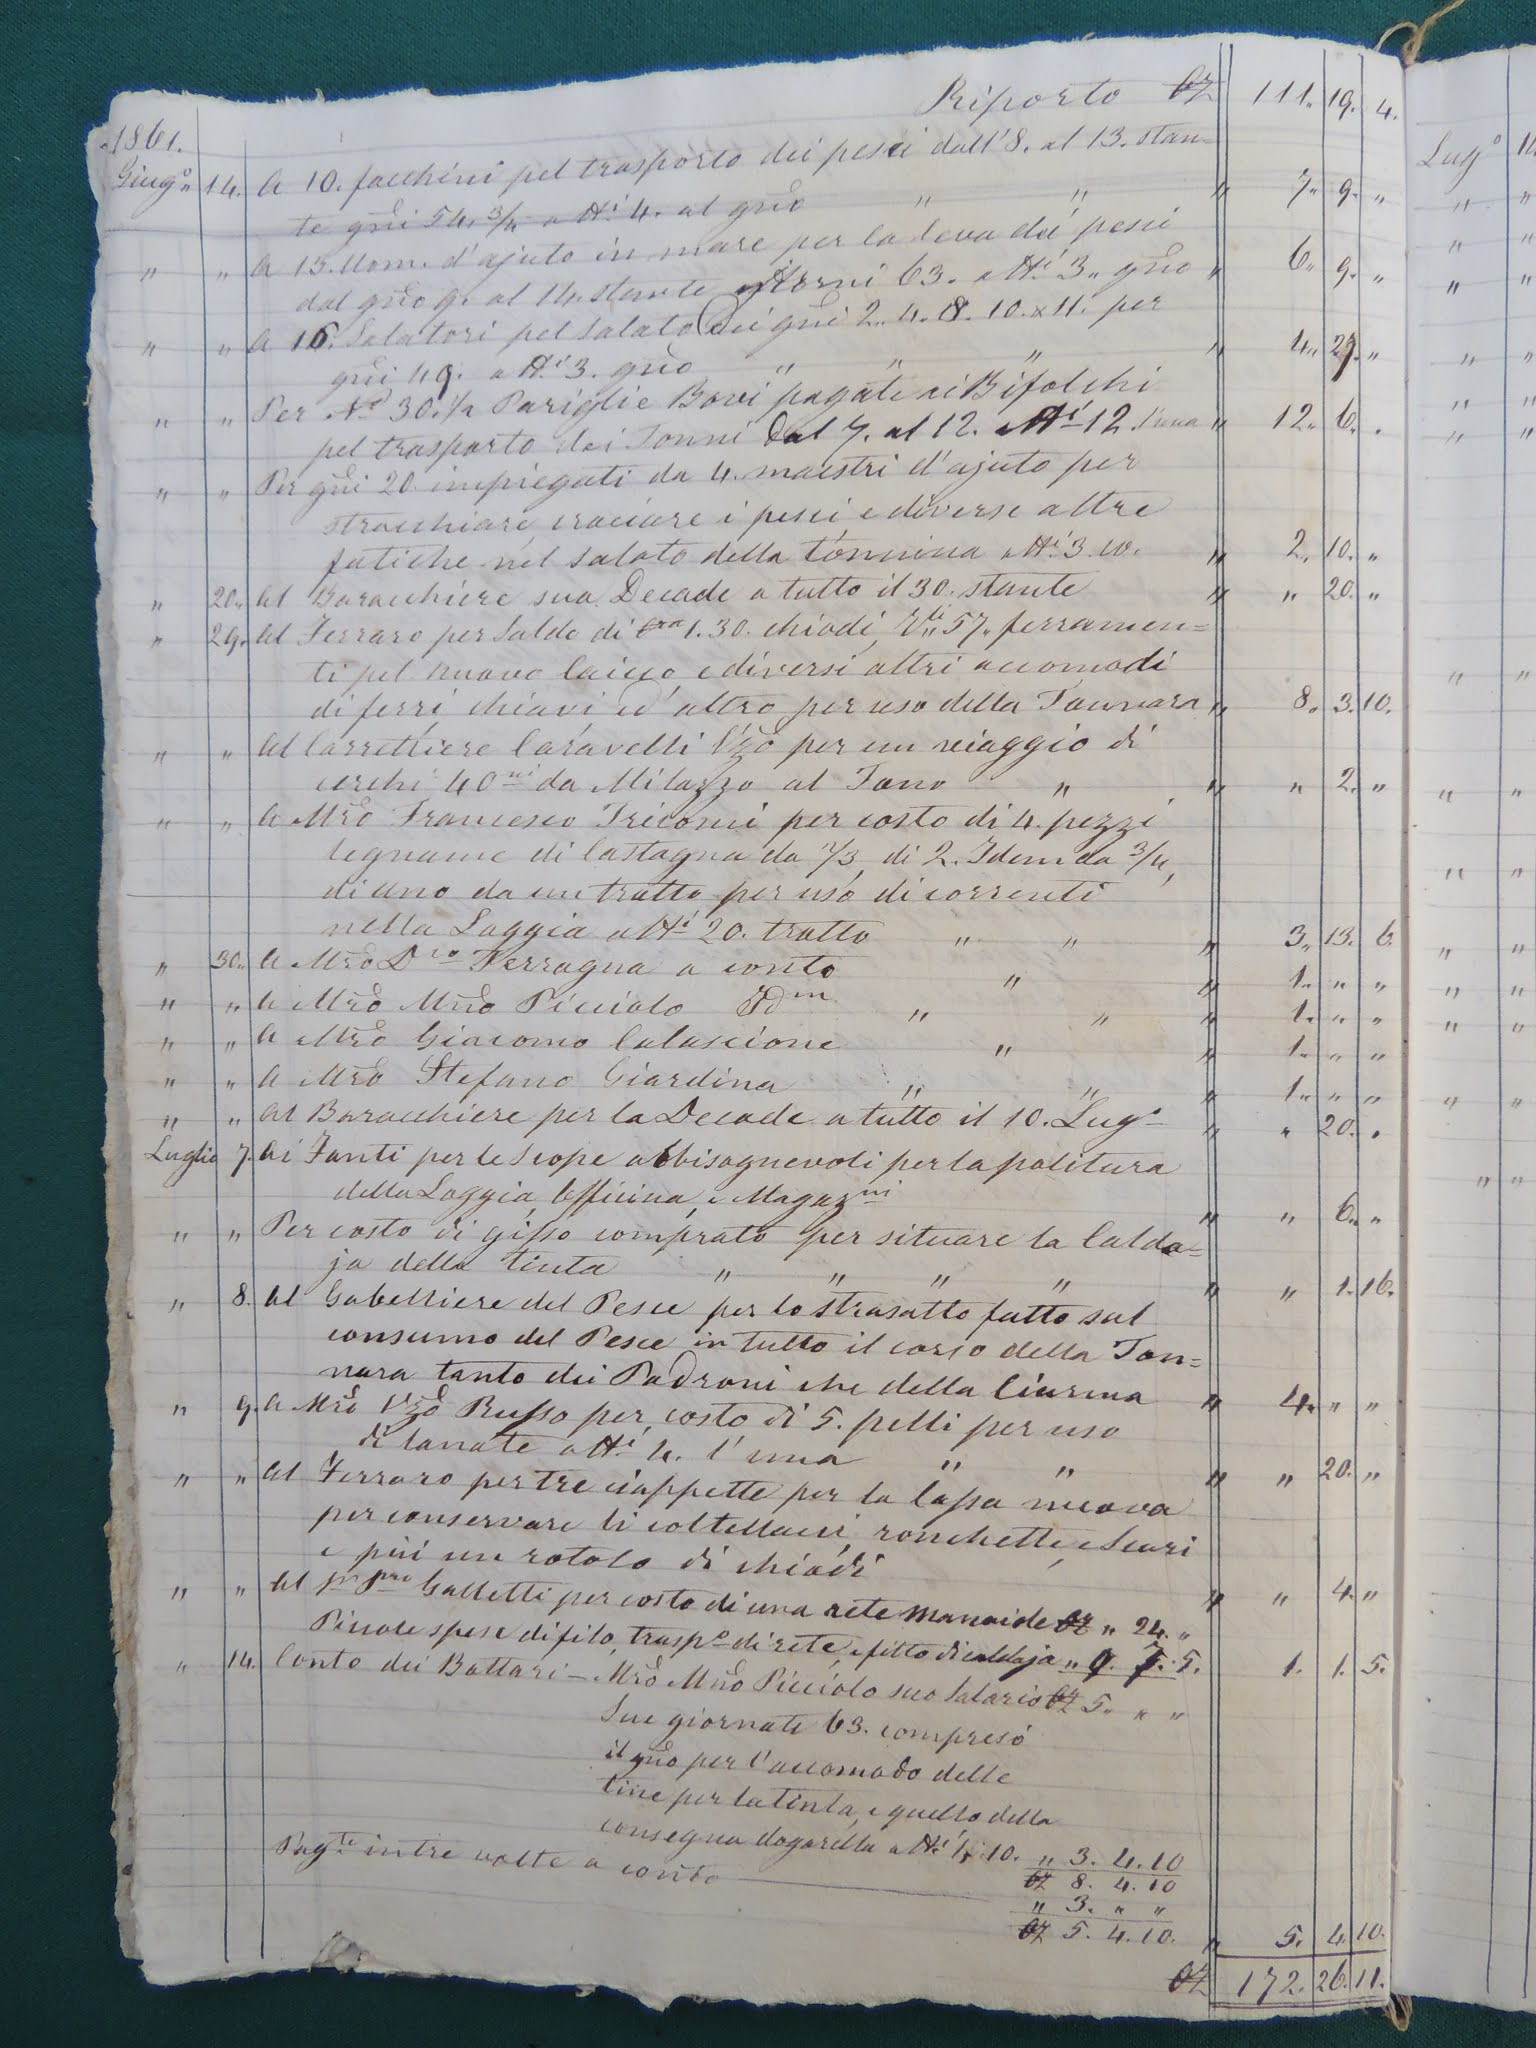 Riporto oz 111. 19. 4.
1861.
Giug.o 14. A 10. facchini pel trasporto dei pesci dall'8. al 13. stan=
te gni 54. 3/4 a tt.i 4. al gno " " " 7. 9. "
" " A 13. Uom. d'ajuto in mare per la leva dei pesci
dal gno 9. al 14. stante giorni 63. a tt.i 3. gno " 6. 9. "
" " A 16. Salatori pel salato dei gni 2. 4. 8. 10. x 11. per
gni 49. a tt.i 3. gno " " " " 4. 27. "
" " Per N.o 30. 1/2 Pariglie Bovi pagate ai Bifolchi
pel trasporto dei Tonni dal 7. al 12. a tt.i 12. l'una " 12. 6. .
" " Per gni 20 impiegati da 4. maestri d'ajuto per
stracchiare, crociare i pesci, e diverse altre
fatiche nel salato della tonnina a tt.i 3. 10. " 2. 10. "
" 20. Al Baracchiere sua Decade a tutto il 30. stante " " 20. "
" 29. Al Ferraro per saldo di 1. 30. chiodi, 57. ferramen=
ti pel nuovo caicco, e diversi altri accomodi
di ferri, chiavi, ed altro per uso della Tonnara " 8. 3. 10.
" " Al Carrettiere Caravelli Vzo per un viaggio di
cerchi 40ni da Milazzo al Tono " " " 2. "
" " A Mro Francesco Tricomi per costo di 4. pezzi
legname di Castagna da 2/3, di 2. Idem da 3/4,
di uno da un tratto per uso di correnti
nella Loggia a tt.i 20. tratto " " " 3. 13. 6.
" 30. A Mro D.co Ferragna a conto " " 1. " "
" " A Mro Mno Picciolo Idm " " " 1. " "
" " A Mro Giacomo Calascione " " 1. " "
" " A Mro Stefano Giardina " " " 1. " "
" " Al Baracchiere per la Decade a tutto il 10. Lug.o " " 20. .
Luglio 7. Ai Fanti per le scope abbisognevoli per la politura
della Loggia, Officina, e Magazni " " 6. "
" " Per costo di gisso comprato per situare la Calda=
ja della tinta " " " " " " 1. 16.
" 8. Al Gabelliere del Pesce per lo strasatto fatto sul
consumo del Pesce in tutto il corso della Ton=
nara tanto dei Padroni che della Ciurma " 4. " "
" 9. A Mro Vzo Russo per costo di 5. pelli per uso
di lanate a tt.i 4. l'una " " " " 20. "
" " Al Ferraro per tre ciappette per la Cassa nuova
per conservare li coltellacci, ronchette, e Scuri
e più un rotolo di chiodi " " 4. "
" " Al Galletti per costo di una rete manaide oz " 24. "
Piccole spese di filo, trasp.o di rete, e fitto di caldaja " 9. 7. 5. 1. 1. 5.
" 14. Conto dei Bottari - Mro Mno Picciolo suo Salario oz 5. " "
Sue giornate 63. compreso
il gno per l'accomodo delle
tine per la tinta, e quello della
consegna dogarella a tt.i 1. 10. " 3. 4. 10
oz 8. 4. 10
Pag.te in tre volte a conto " 3. " "
oz 5. 4. 10. " 5. 4. 10.
oz 172. 26. 11.
Lug.o